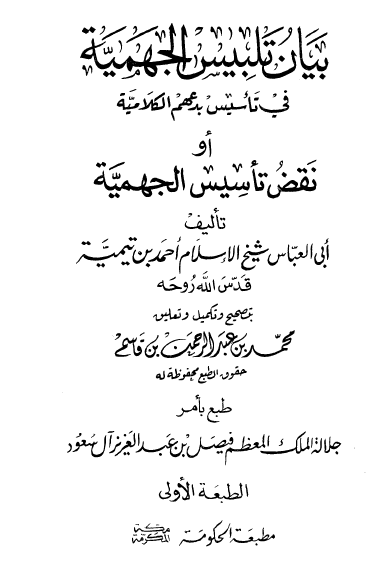 بَيَانُ تَلبِيسِ الجَهميَّة
في تَأسِيسِ بِدعهم الكَلاميَّة
أو
نَقضُ تأسِيسِ الجهميَّة
تأليف
أبي العبَّاس شيخ الإسلام أحمد بن تيميَّة
قدّسَ اللَّه رُوحَه
بتصحيح وتكميل وتعليق
محمّد بن عبد الرحمن بن قاسم
حقوق الطبع محفوظة له
طبع بأمر
جلالة الملك المعظم فيصل بن عبد العزيز آل سعود
الطبعَة الأولى
مطبعة الحكومة مكة المكرمة